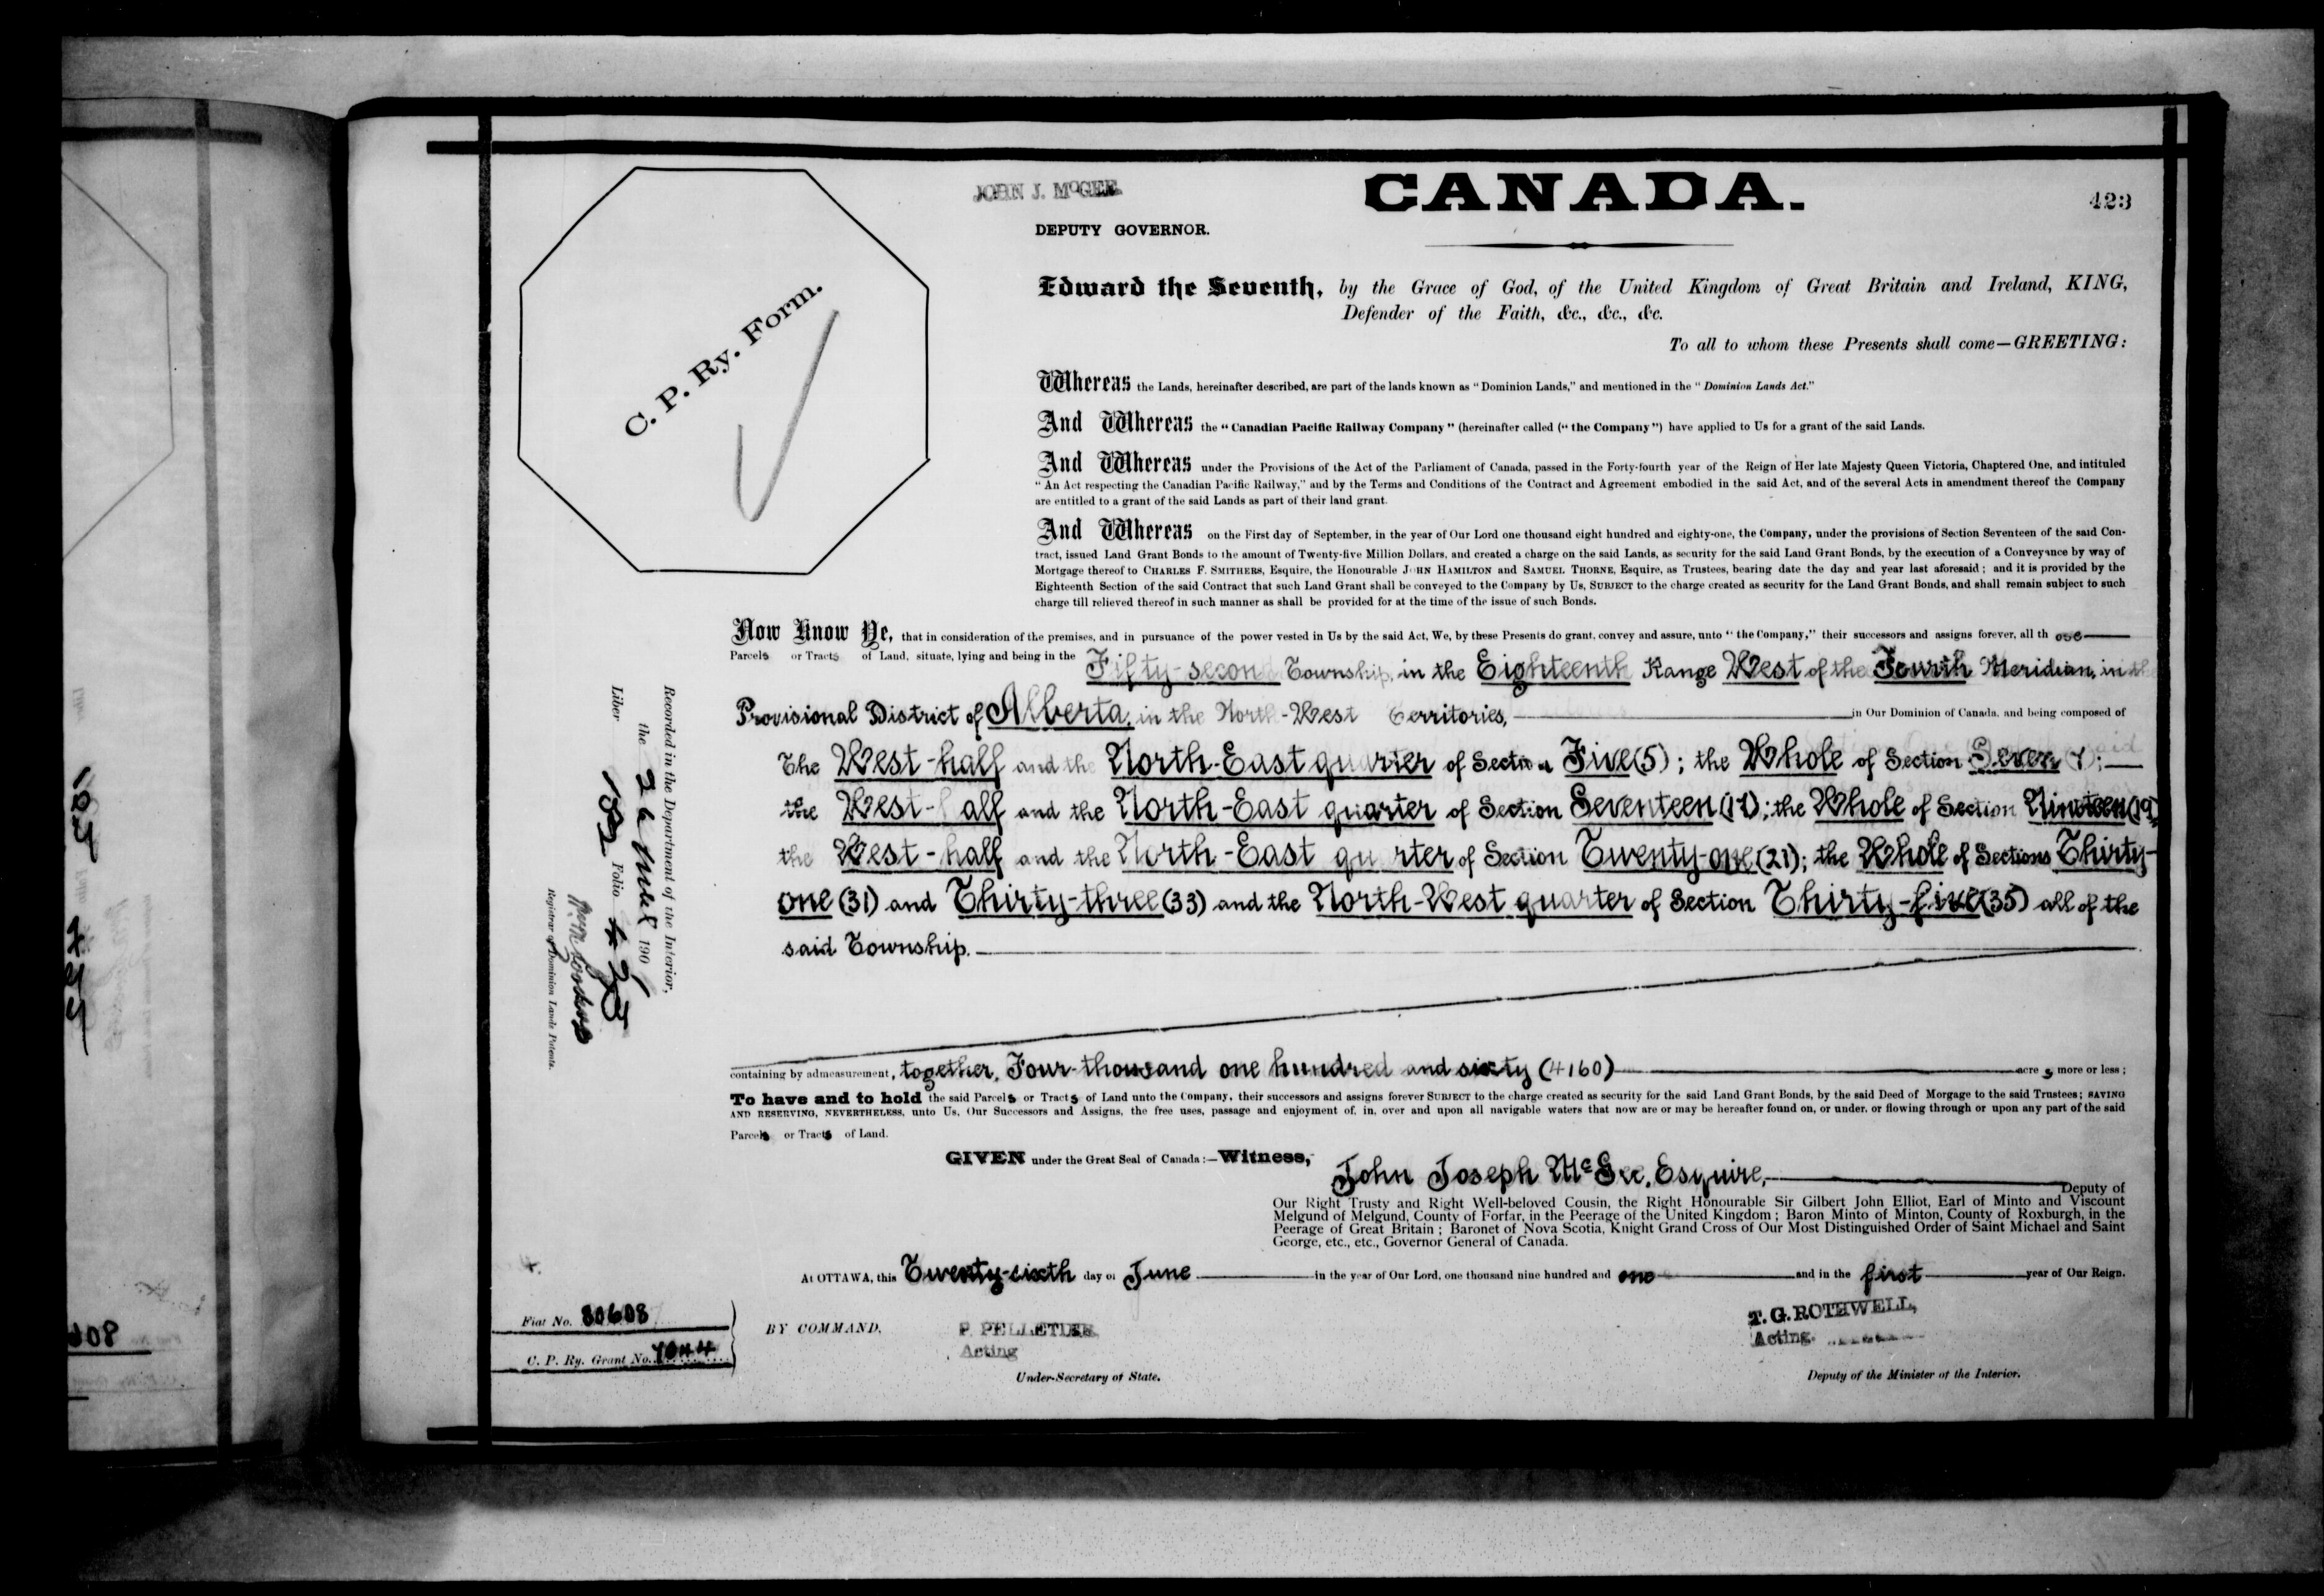 JOHN J. McGEE
DEPUTY GOVERNOR.
CANADA.
423
C. P. Ry. Form.
Edward the Seventh, by the Grace of God, of the United Kingdom of Great Britain and Ireland, KING,
Defender of the Faith, &c., &c., &c.
To all to whom these Presents shall come—GREETING:
Whereas the Lands, hereinafter described, are part of the lands known as "Dominion Lands," and mentioned in the "Dominion Lands Act."
And Whereas the "Canadian Pacific Railway Company" (hereinafter called ("the Company") have applied to Us for a grant of the said Lands.
And Whereas under the Provisions of the Act of the Parliament of Canada, passed in the Forty-fourth year of the Reign of Her late Majesty Queen Victoria, Chaptered One, and intituled
"An Act respecting the Canadian Pacific Railway," and by the Terms and Conditions of the Contract and Agreement embodied in the said Act, and of the several Acts in amendment thereof the Company
are entitled to a grant of the said Lands as part of their land grant.
And Whereas on the First day of September, in the year of Our Lord one thousand eight hundred and eighty-one, the Company, under the provisions of Section Seventeen of the said Con-
tract, issued Land Grant Bonds to the amount of Twenty-five Million Dollars, and created a charge on the said Lands, as security for the said Land Grant Bonds, by the execution of a Conveyance by way of
Mortgage thereof to CHARLES F. SMITHERS, Esquire, the Honourable JOHN HAMILTON and SAMUEL THORNE, Esquire, as Trustees, bearing date the day and year last aforesaid; and it is provided by the
Eighteenth Section of the said Contract that such Land Grant shall be conveyed to the Company by Us, SUBJECT to the charge created as security for the Land Grant Bonds, and shall remain subject to such
charge till relieved thereof in such manner as shall be provided for at the time of the issue of such Bonds.
Now Know Ye, that in consideration of the premises, and in pursuance of the power vested in Us by the said Act, We, by these Presents do grant, convey and assure, unto "the Company," their successors and assigns forever, all those
Parcels or Tracts of Land, situate, lying and being in the Fifty-second Township, in the Eighteenth Range West of the Fourth Meridian, in the
Provisional District of Alberta, in the North-West Territories, in Our Dominion of Canada, and being composed of
The West-half and the North-East quarter of Section Five (5); the Whole of Section Seven (7);
the West-half and the North-East quarter of Section Seventeen (17); the Whole of Section Nineteen (19)
the West-half and the North-East quarter of Section Twenty-one (21); the Whole of Sections Thirty-
one (31) and Thirty-three (33) and the North-West quarter of Section Thirty-five (35) all of the
said Township.
containing by admeasurement, together, Four-thousand one hundred and sixty (4160) acres more or less;
To have and to hold the said Parcels or Tracts of Land unto the Company, their successors and assigns forever SUBJECT to the charge created as security for the said Land Grant Bonds, by the said Deed of Morgage to the said Trustees; SAVING
AND RESERVING, NEVERTHELESS, unto Us, Our Successors and Assigns, the free uses, passage and enjoyment of, in, over and upon all navigable waters that now are or may be hereafter found on, or under, or flowing through or upon any part of the said
Parcels or Tracts of Land.
GIVEN under the Great Seal of Canada:—Witness, John Joseph McGee, Esquire, Deputy of
Our Right Trusty and Right Well-beloved Cousin, the Right Honourable Sir Gilbert John Elliot, Earl of Minto and Viscount
Melgund of Melgund, County of Forfar, in the Peerage of the United Kingdom; Baron Minto of Minton, County of Roxburgh, in the
Peerage of Great Britain; Baronet of Nova Scotia, Knight Grand Cross of Our Most Distinguished Order of Saint Michael and Saint
George, etc., etc., Governor General of Canada.
At OTTAWA, this Twenty-sixth day of June in the year of Our Lord, one thousand nine hundred and one and in the first year of Our Reign.
BY COMMAND,
P. PELLETIER
Acting
Under-Secretary of State.
T. G. ROTHWELL,
Acting
Deputy of the Minister of the Interior.
Recorded in the Department of the Interior,
the 26 June 1901
Liber Folio
Registrar of Dominion Lands Patents.
Fiat No. 80608
C. P. Ry. Grant No. 1044